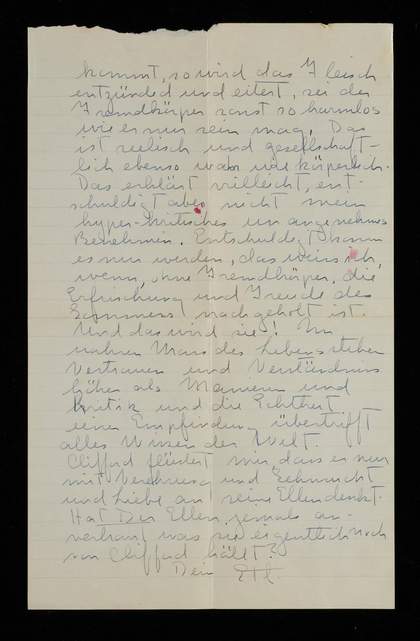 kommt, so wird das Fleisch
entzündet und eitert, sei der
Fremdkörper sonst so harmlos
wie er nur sein mag. Das
ist seelisch und gesellschaft-
lich ebenso wahr wie körperlich.
Das erklärt vielleicht, ent-
schuldigt aber nicht mein
hyper-kritisches unangenehmes
Benehmen. Entschuldigt kann
es nur werden, das weiss ich,
wenn, ohne Fremdkörper, die
Erfrischung und Freude des
nachgeholt ist.
Und das wird sie! Im
wahren des Lebens stehen
Vertrauen und Verständniss
höher als Manieren und
Kritik und die Echtheit
einer Empfindung übertrifft
alles Wissen der Welt.
Clifford flüstert mir, dass er nur
mit Verehrung und Sehnsucht
und Liebe an seine Ellen denkt.
Hat Dir Ellen jemals an-
vertraut was sie eigentlich noch
von Clifford hält?
Dein